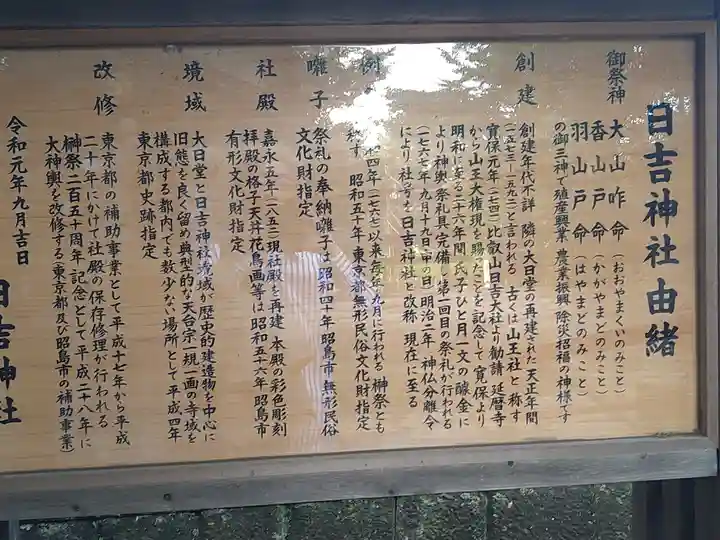 日吉神社由緒
御祭神 大山咋命(おおやまくいのみこと)
香山戸命(かがやまどのみこと)
羽山戸命(はやまどのみこと)
の御三神で殖産興業 農業振興 除災招福の神様です
創建 創建年代不詳 隣の大日堂の再建された天正年間
(一五七三-一五九二)と言われる 古くは山王社と称す
寛保元年(一七四一)比叡山日吉大社より勧請 延暦寺
から山王大権現を賜った これを記念して寛保より
明和に至る二十六年間 氏子ひと月一文の醵金に
より神輿祭礼具完備し第一回目の祭礼が行われる
(一七六七年九月十九日申の日)明治二年 神仏分離令
により社号を日吉神社と改称 現在に至る
例
四年(一七六七)以来毎年九月に行われる 榊祭とも
称す 昭和五十年 東京都無形民俗文化財指定
囃子 祭礼の奉納囃子は昭和四十年 昭島市 無形民俗
文化財指定
社殿 嘉永五年(一八五二)現社殿を再建 本殿の彩色彫刻
拝殿の格子天井花鳥画等は昭和五十六年 昭島市
有形文化財指定
境域 大日堂と日吉神社境域が歴史的建造物を中心に
旧態を良く留め典型的な天台宗一規一画の寺域を
構成する都内でも数少ない場所として平成四年
東京都史跡指定
改修 東京都の補助事業として平成十七年から平成
二十年にかけて社殿の保存修理が行われる
榊祭二百五十周年 記念として平成二十八年に
大神輿を改修する(東京都及び昭島市の補助事業)
令和元年九月吉日
日吉神社